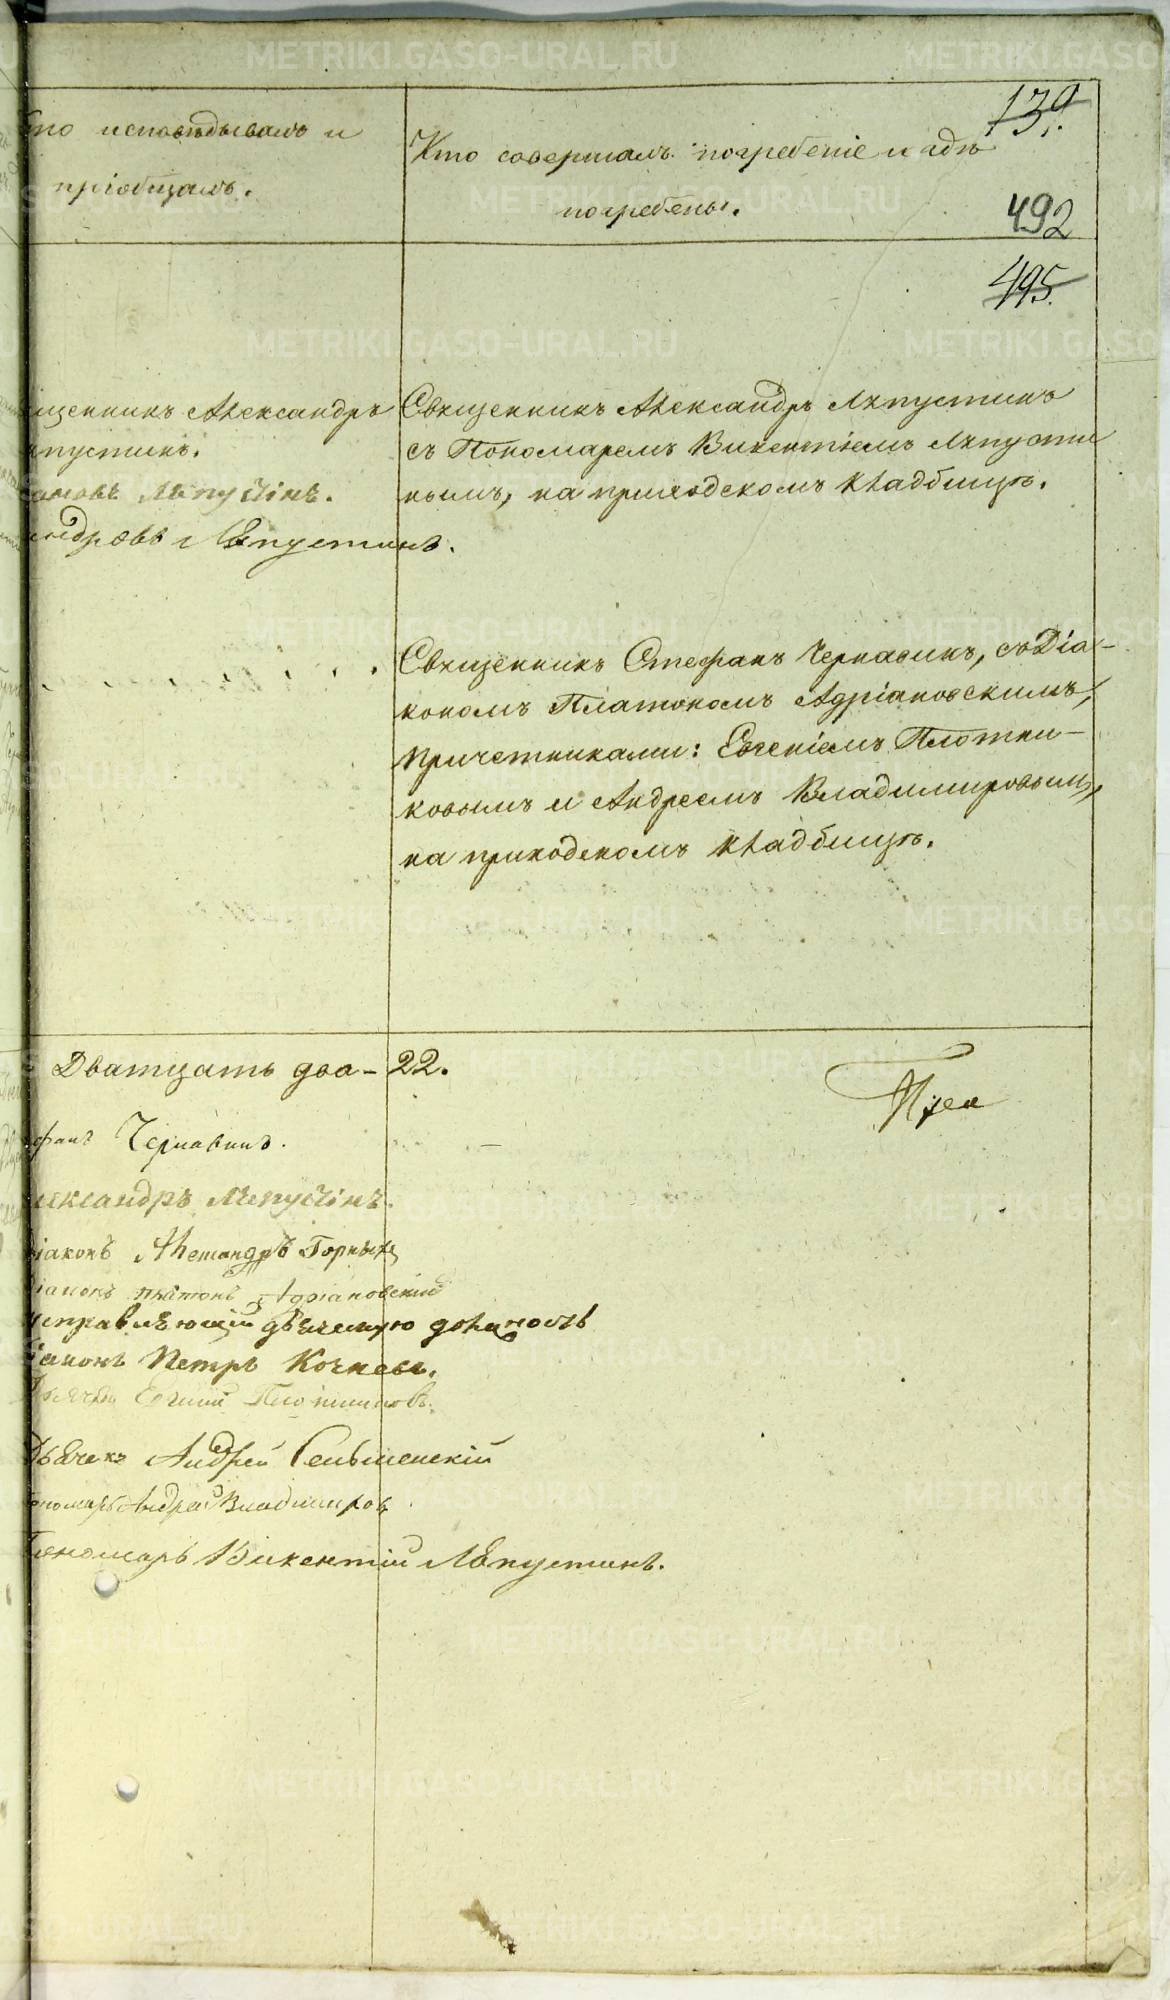 139.
Кто исповѣдывалъ и
пріобщалъ.
Кто совершалъ погребеніе и гдѣ
погребены.
492
495.
щенникъ Александръ
пустинъ.
Лѣпустінъ.
ндровъ Лѣпустинъ.
Священникъ Александръ Лѣпустинъ
съ Пономаремъ Викентіемъ Лѣпусти
нымъ, на приходскомъ кладбищѣ.
Священникъ Стефанъ Чернавинъ, съ Діа-
кономъ Платономъ Адріановскимъ,
причетниками: Евгеніемъ Плотни-
ковымъ и Андреемъ Владимировымъ,
на приходскомъ кладбищѣ.
Дватцать два - 22.
фанъ Чернавинъ.
лександръ Лѣпустінъ.
іаконъ Александръ Горныхъ
іаконъ Платонъ Адріановскій
исправляющій дьяческую должность
іаконъ Петръ Кочневъ.
Дьячекъ Евгеній Плотниковъ.
Дьячекъ Андрей Сельменскій
ономарь Андрей Владимировъ
Пономарь Викентій Лѣпустинъ.